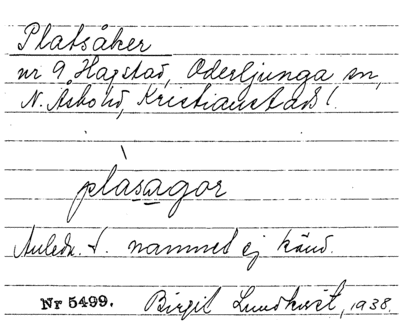 Platsåker
nr 9 Hagstad, Oderljunga sn,
N. Åsbo hd, Kristianstads l.
plasagor
Anledn. t. namnet ej känd.
Nr 5499. Birgit Lundkvist, 1938.